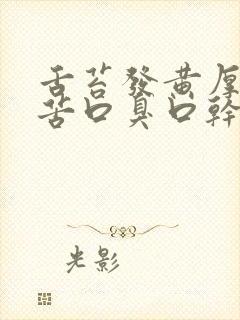 舌苔發黃厚
苦口臭口幹
光影